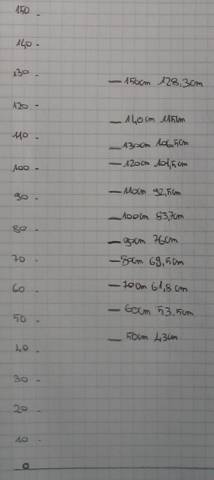 150 -
140 -
130 -
150cm 128,3cm
120 -
140cm 115cm
110 -
130cm 106,5cm
120cm 101,5cm
100 -
110cm 92,5cm
90 -
100cm 83,7cm
80 -
90cm 76cm
70 -
80cm 69,5cm
70cm 61,8cm
60 -
60cm 53,5cm
50 -
50cm 43cm
40 -
30 -
20 -
10 -
0